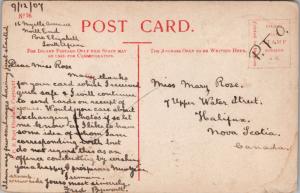 9/12/07
No 76
15 Myrtle Avenue
North End
Port Elizabeth
South Africa
POST CARD.
FOR INLAND POSTAGE ONLY THIS SPACE MAY
BE USED FOR COMMUNICATION.
THE ADDRESS ONLY TO BE WRITTEN HERE.
P.P.C.
STAMP
Dear Miss Rose
Many thanks
for your card which I received
quite safe & I will continue
to send cards on receipt of
yours. Would you care about
exchanging photos if so let
me know as I like to have
some idea of whom I am
corresponding with, but
do not regard this as an
offence. Concluding by wishing
you a happy & prosperous
I remain
yours most sincerely
Fred
Miss Mary Rose.
7 Upper Water Street.
Halifax.
Nova Scotia.
Canada.